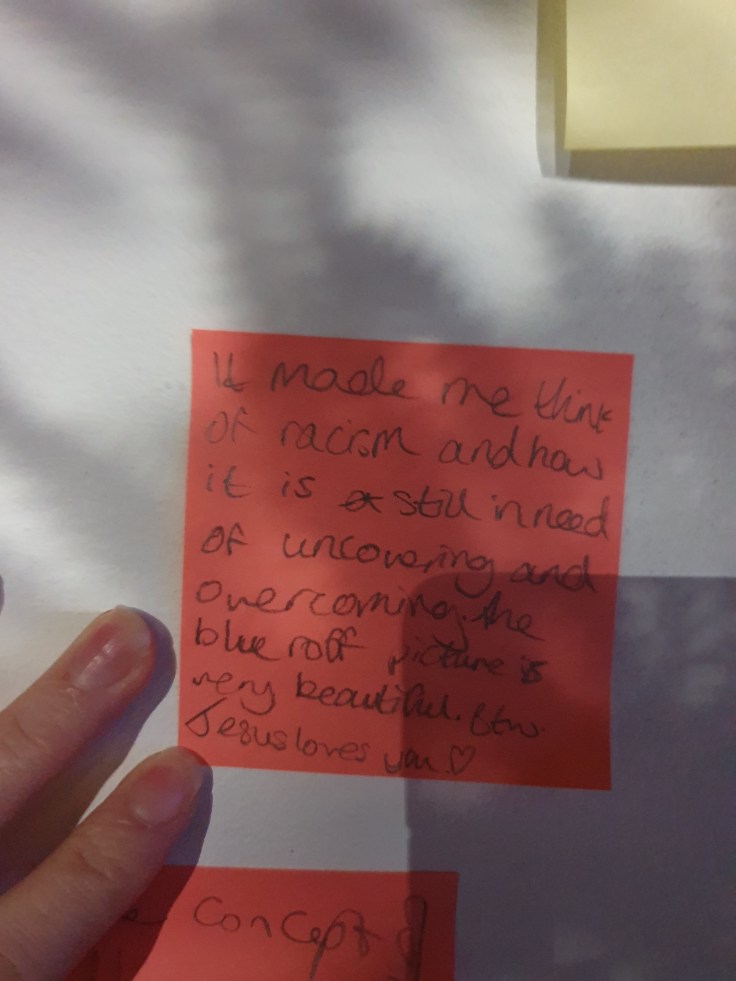 It made me think
of racism and how
it is still in need
of uncovering and
overcoming. the
blue roff picture is
very beautiful. btw.
Jesus loves you ♡
concept